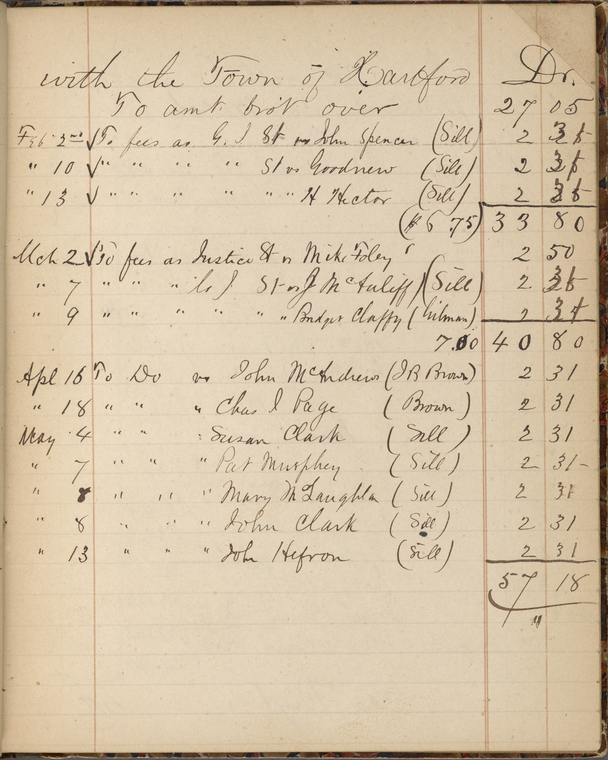 with the Town of Hartford Dr.
To amt brot over 27 05
Feb 2nd √ To fees as G. J St vs John Spencer (Sill) 2
" 10 √ " " " " St vs Goodnew (Sill) 2
" 13 √ " " " " " H Hector (Sill) 2
($6 75) 33 80
Mch 2 √ To fees as Justice St vs Mike Foley 2 50
" 7 " " " J St vs J McAuliff (Sill) 2
" 9 " " " " " " Claffy (Gilman) 2
7.00 40 80
Apl 16 To Do vs John McAndrews (J B Brown) 2 31
" 18 " " " Chas I Page (Brown) 2 31
May 4 " " " Susan Clark (Sill) 2 31
" 7 " " " Pat Murphey (Sill) 2 31
" 8 " " " Mary McLaughlin (Sill) 2 31
" 8 " " " John Clark (Sill) 2 31
" 13 " " " John Hefron (Sill) 2 31
57 18
"